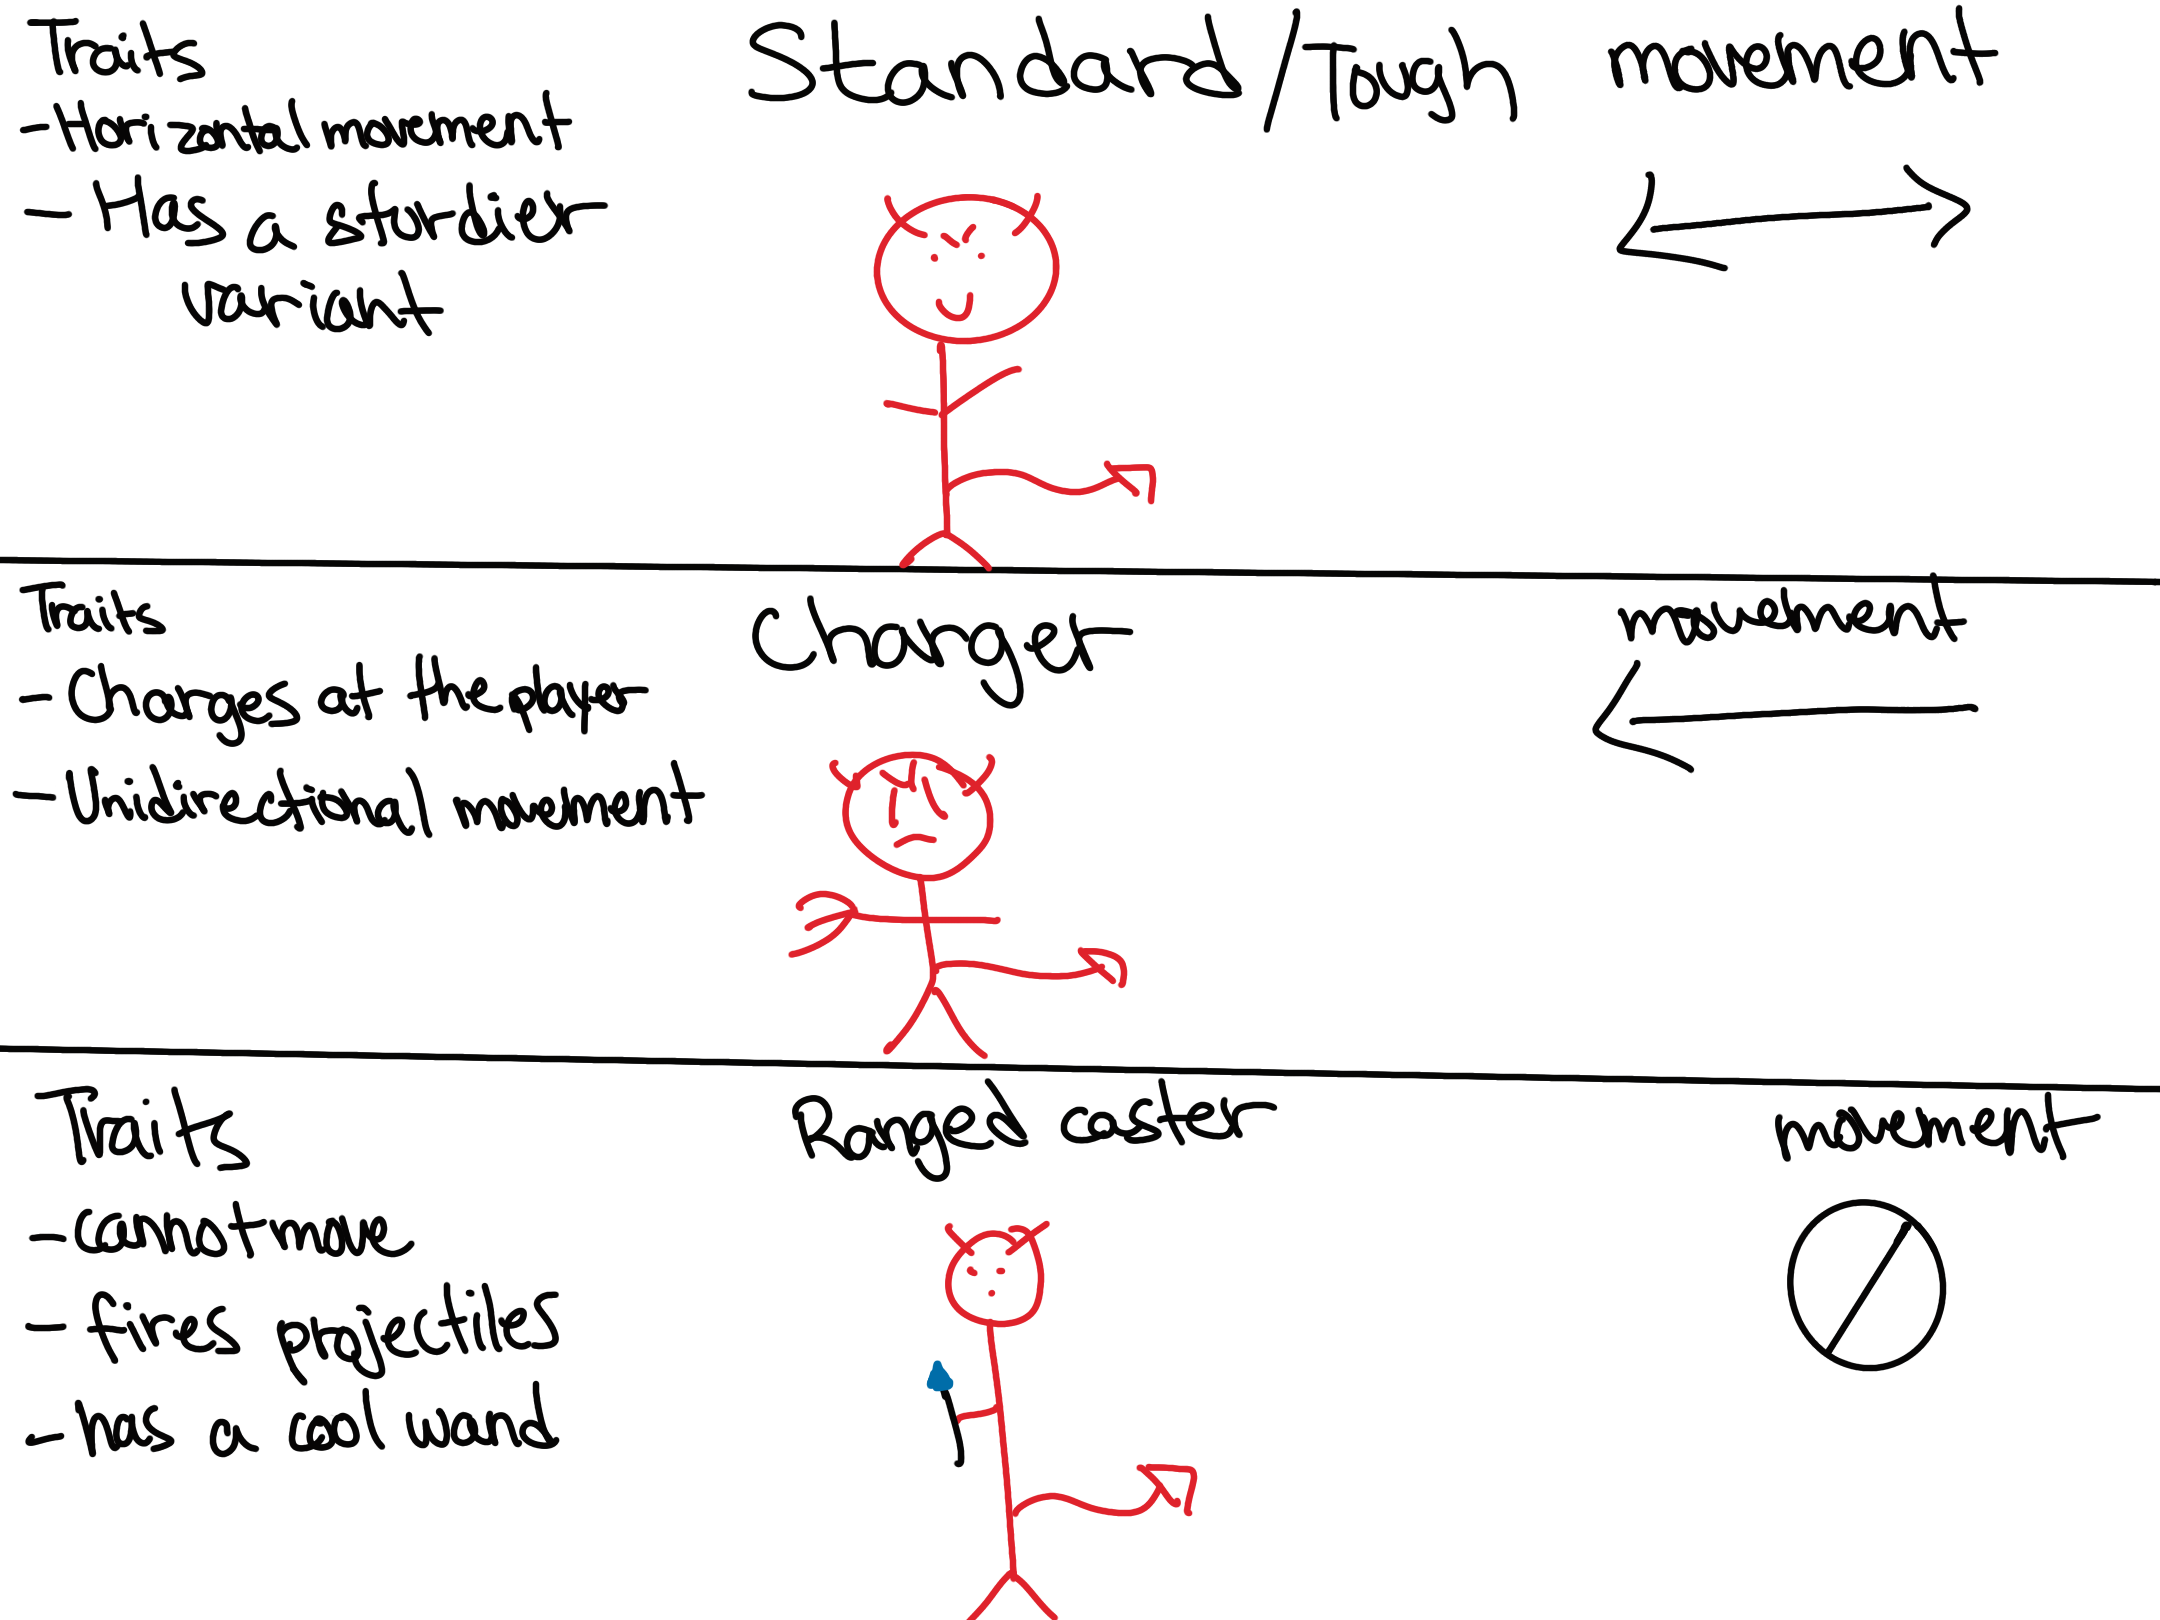 Traits
- Horizontal movement
- Has a sturdier
variant
Standard/Tough
movement
Traits
- Charges at the player
- Unidirectional movement
Charger
movement
Traits
- cannot move
- fires projectiles
- has a cool wand
Ranged caster
movement